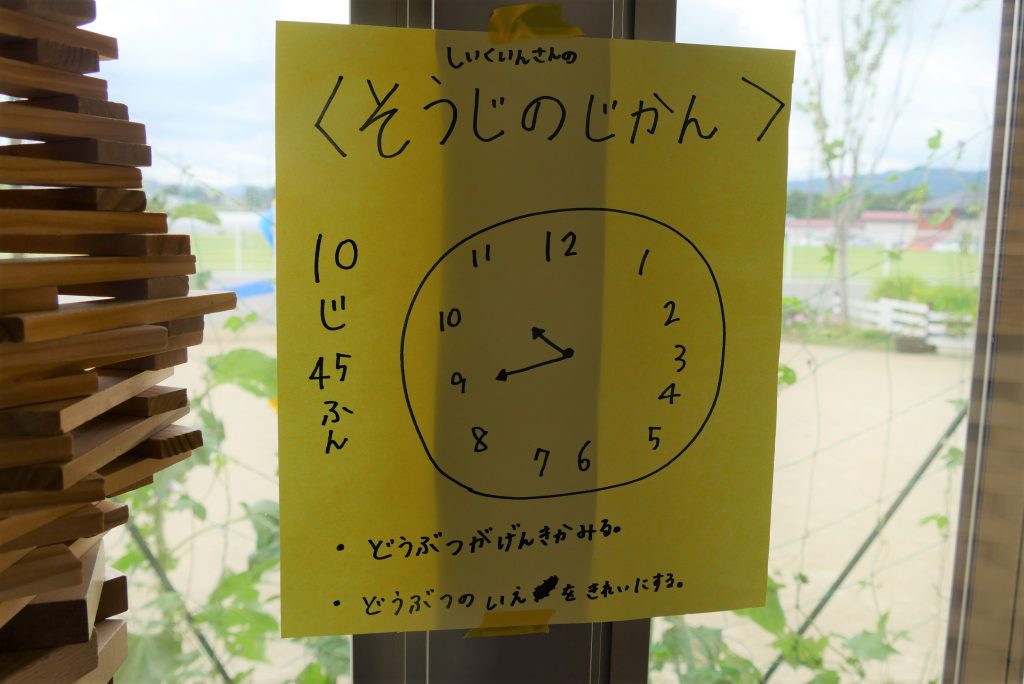 しいくいんさんの
〈そうじのじかん〉
10じ45ふん
11 12 1
10 2
9 3
4
8 5
7 6
・どうぶつがげんきかみる。
・どうぶつのいえをきれいにする。